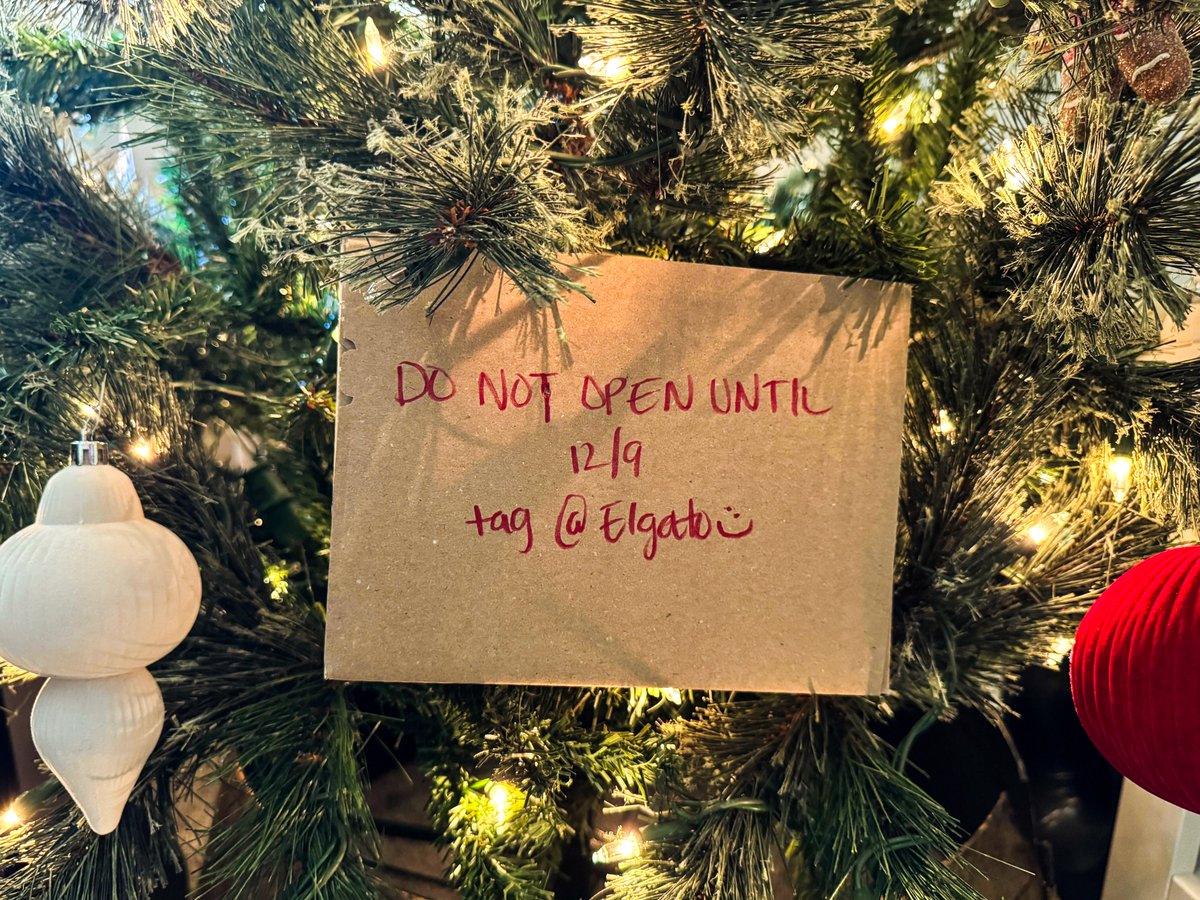 DO NOT OPEN UNTIL
12/9
tag @Elgato